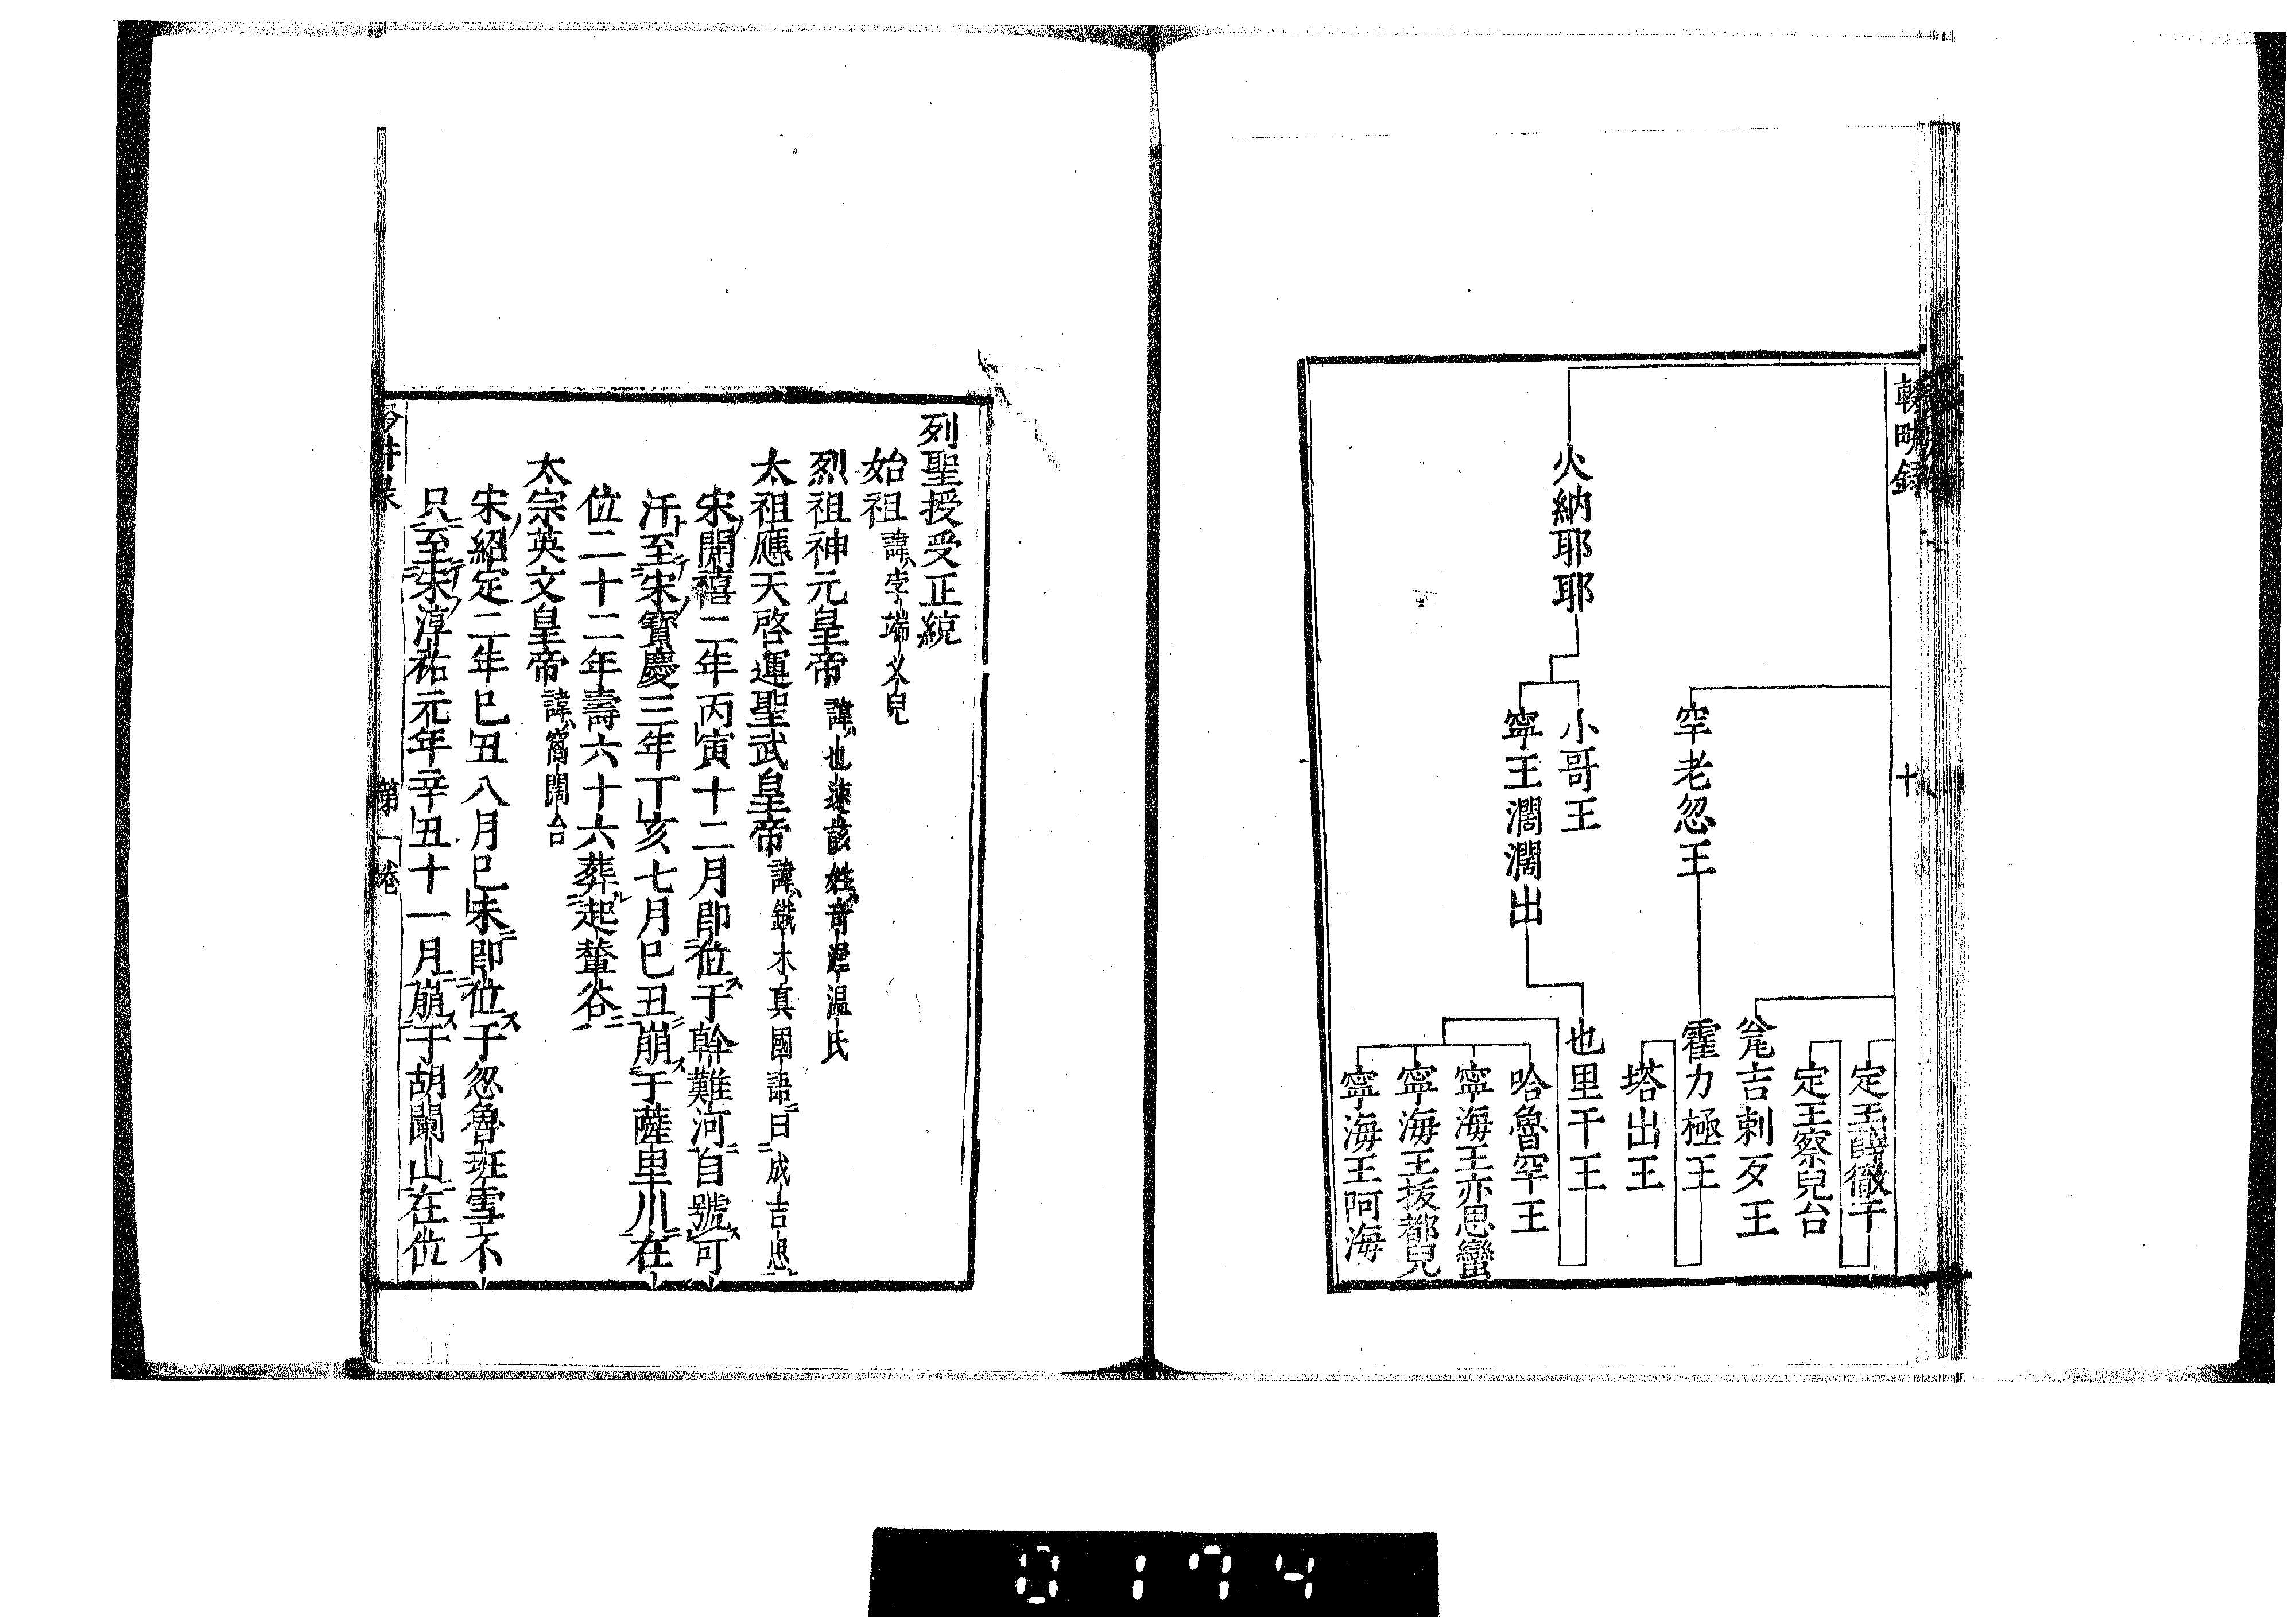 輟畊録
十
定王薛徹干
定王察兒台
瓮吉剌歹王
霍力極王
罕老忽王
塔出王
火納耶耶
小哥王
也里干王
寧王濶濶出
哈魯罕王
寧海王亦思蠻
寧海王拔都兒
寧海王阿海
列聖授受正統
始祖諱孛端义兒
烈祖神元皇帝諱也速該姓奇渥温氏
太祖應天啓運聖武皇帝諱鐵木真國語曰成吉思
宋開禧二年丙寅十二月即位于斡難河自號可
汗至宋寳慶三年丁亥七月巳丑崩于薩里川在
位二十二年壽六十六葬起輦谷
太宗英文皇帝諱窩闊台
宋紹定二年巳丑八月巳未即位于忽魯班雪不
只至宋淳祐元年辛丑十一月崩于胡闌山在位
第一卷
0174